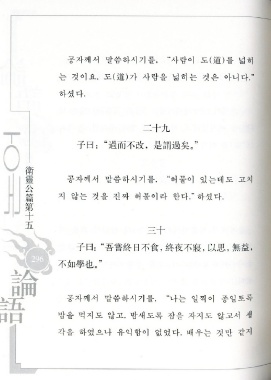 공자께서 말씀하시기를, “사람이 도(道)를 넓히
는 것이요, 도(道)가 사람을 넓히는 것은 아니다.”
하셨다.
二十九
子曰; “過而不改, 是謂過矣。”
공자께서 말씀하시기를, “허물이 있는데도 고치
지 않는 것을 진짜 허물이라 한다.” 하셨다.
三十
子曰; “吾嘗終日不食, 終夜不寢, 以思, 無益,
不如學也。”
공자께서 말씀하시기를, “나는 일찍이 종일토록
밥을 먹지도 않고, 밤새도록 잠을 자지도 않고서 생
각을 하였으나 유익함이 없었다. 배우는 것만 같지
衛靈公篇第十五
296
論語